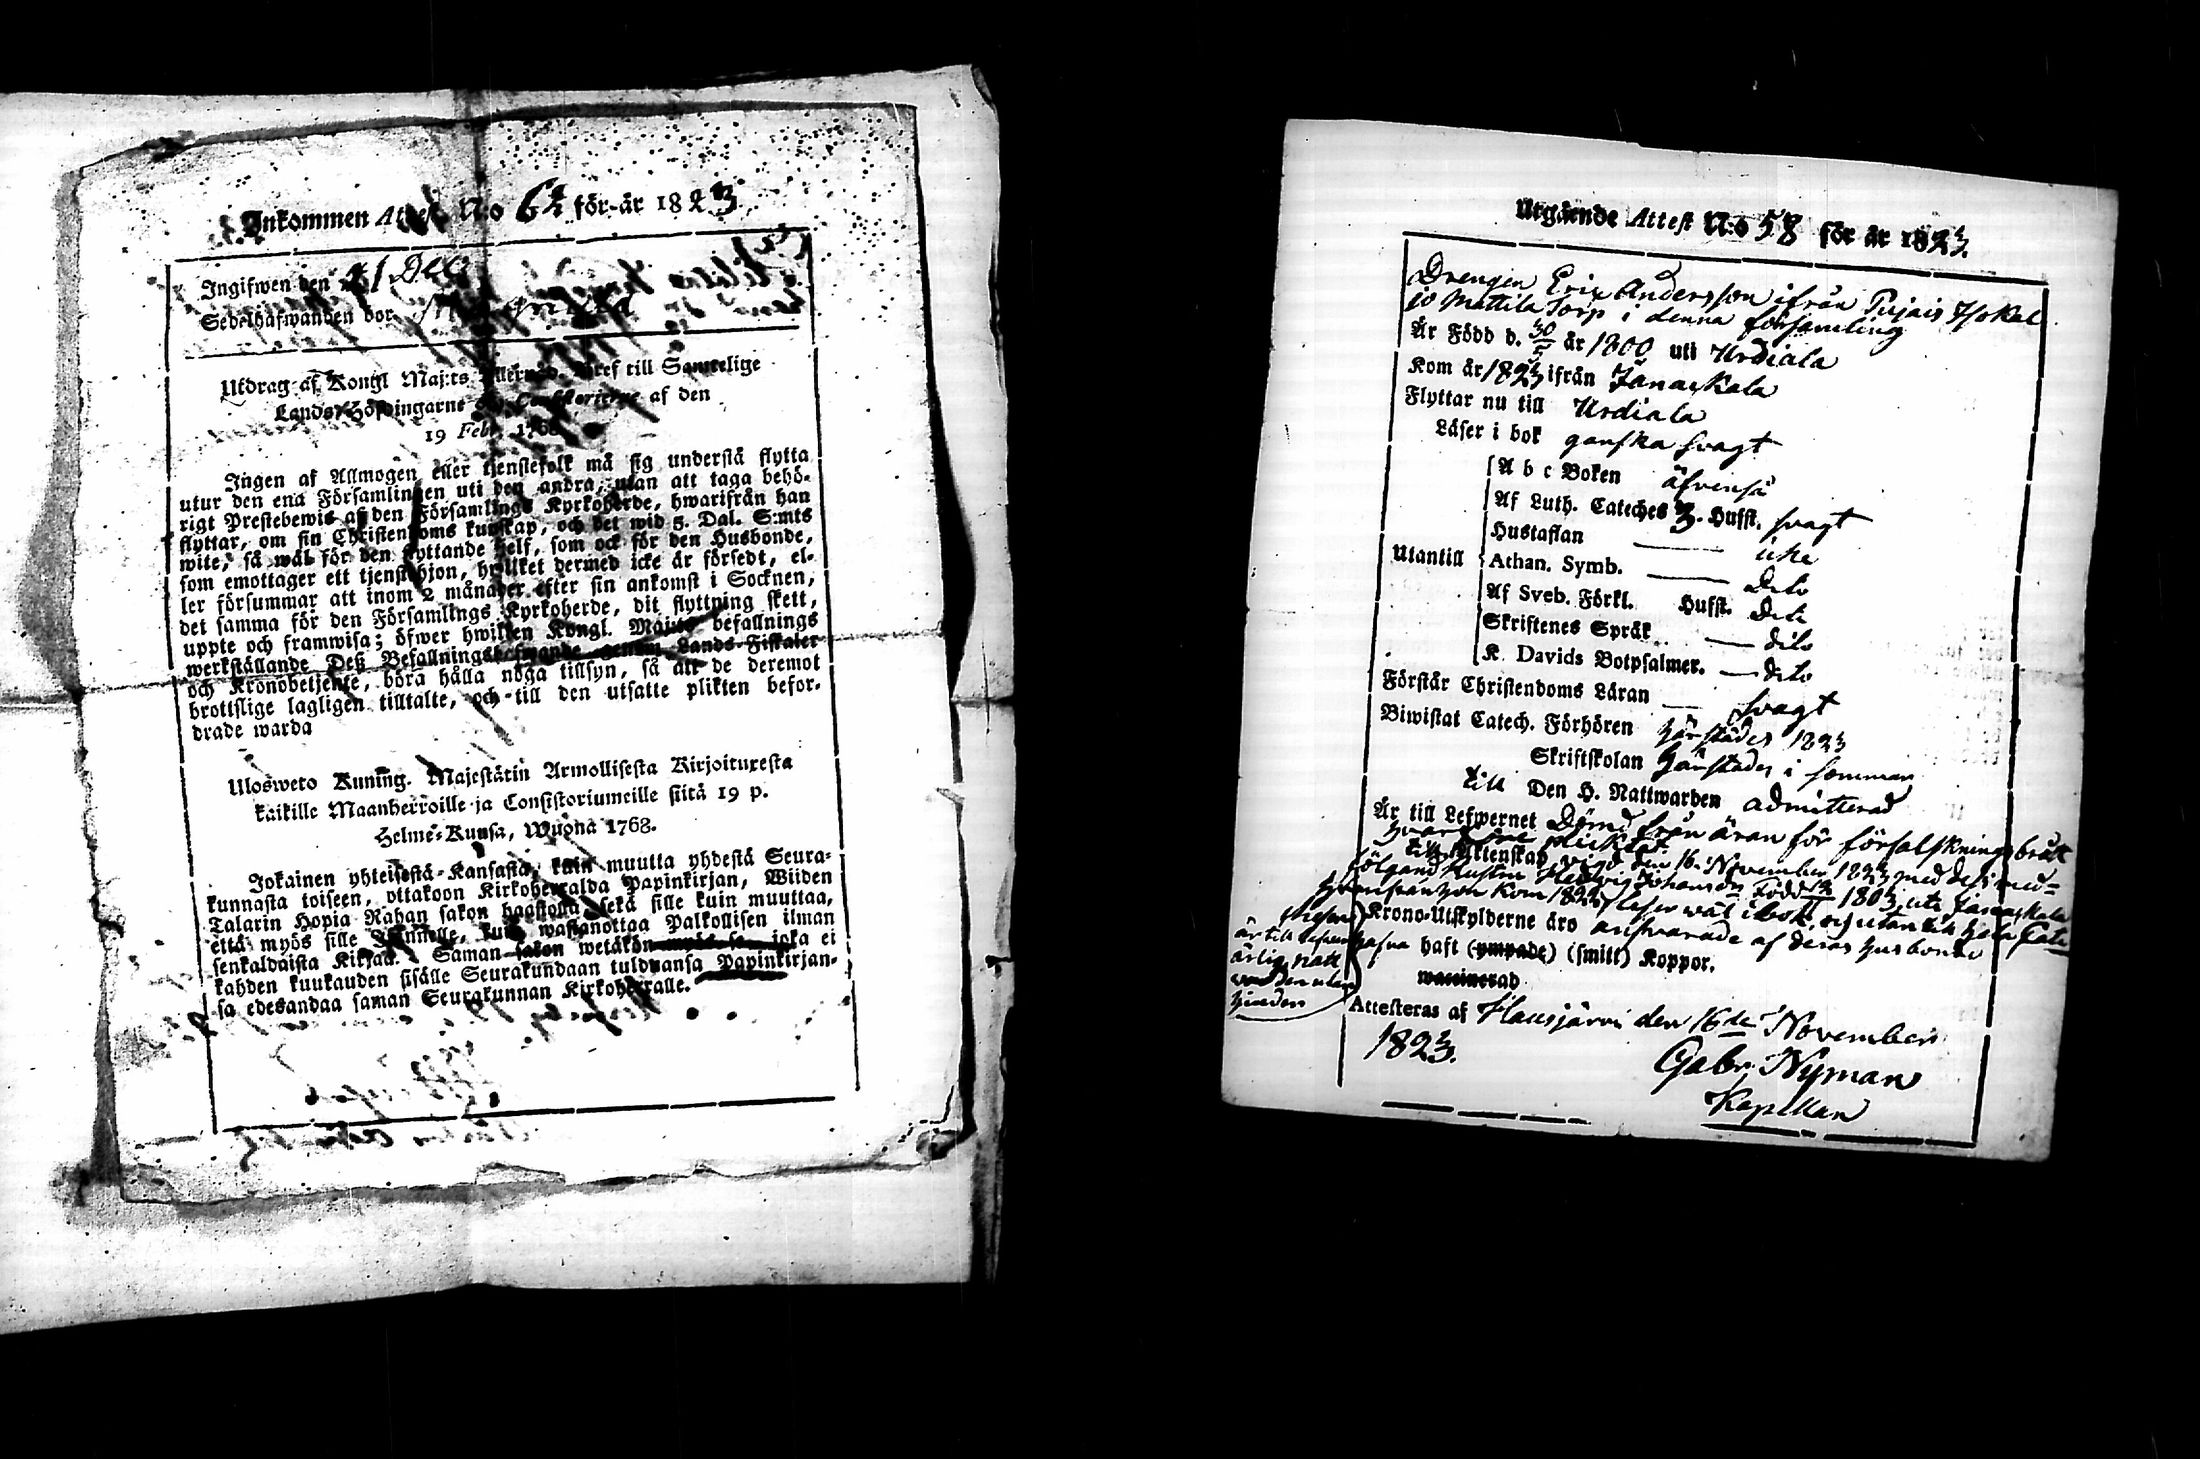 Inkommen Attest N:o 62 för år 1823
Ingifwen den 21 Dec
Sedelhafwanden bor
Utdrag af Kongl Maj:ts Bref till Samtelige
Lands-Höfdingarne och Consistorierne af den
19 Febr. 1768
Ingen af Allmogen eller tjenstefolk må sig understå flytta
utur den ena Församlingen uti den andra, utan att taga behö-
rigt Prestebewis af den Församlings Kyrkoherde, hwarifrån han
flyttar, om sin Christendoms kunskap, och det wid 5. Dal. S:mts
wite, så wäl för den flyttande self, som ock för den Husbonde,
som emottager ett tjenstehjon, hwilket dermed icke är försedt, el-
ler försummar att inom 2 månader efter sin ankomst i Socknen,
det samma för den Församlings Kyrkoherde, dit flyttning skett,
uppte och framwisa; öfwer hwilken Kongl. Maj:ts befallnings
werkställande Deß Befallningshafwande genom Lands-Fiskaler
och Kronobetjente, böra hålla nöga tillsyn, så att de deremot
brottslige lagligen tilltalte, och till den utsatte plikten befor-
drade warda
Ulosweto Kuning. Majestätin Armollisesta Kirjoituxesta
kaikille Maanherroille ja Consistoriumeille siitä 19 p.
Helme-Kuusa, Wuona 1768.
Jokainen yhteisestä Kansasta, kuin muutta yhdestä Seura-
kunnasta toiseen, ottakoon Kirkoherralda Papinkirjan, Wiiden
Talarin Hopia Rahan sakon haastolla, sekä sille kuin muuttaa,
että myös sille Isännelle, kuin wastanottaa Palkollisen ilman
senkaldaista Kirjaa. Saman sakon wetäkön myös se, joka ei
kahden kuukauden sisälle Seurakundaan tulduansa Papinkirjan-
sa edesandaa saman Seurakunnan Kirkoherralle.
Utgående Attest N:o 58 för år 1823.
Drengen Eric Andersson ifrån Pujais Isokal
jo Mattila Torp i denna församling
Är Född d. 30/5 år 1800 uti Urdiala
Kom år 1823 ifrån Janackala
Flyttar nu till Urdiala
Läser i bok ganska svagt
A b c Boken äfvenså
Af Luth. Cateches 3. Hufst. svagt
Hustaflan icke
Utantill
Athan. Symb. Dito
Af Sveb. Förkl. Hufst. Dito
Skriftenes Språk dito
K. Davids Botpsalmer. dito
Förstår Christendoms Läran svagt
Biwistat Catech. Förhören härstädes 1823
Skriftskolan härstädes i sommar
till Den H. Nattwarden admitterad
Är till Lefwernet Dömd från äran för förfalskningsbrått
hvarföre pliktat.
till Äktenskap vigd den 16 November 1823 med dess med-
följande Hustru Hedvig Johansdr född 1803 uti Janackala
hvarifrån hon kom 1823, läser wäl i bok, och utan till hela Cate
chesen
är till lefvernet
ärlig, natt
varden utan
hinder
Krono-Utskylderne äro ansvarade af deras husbonde
hafva haft (ympade) (smitt) Koppor.
waccinerad
Attesteras af Hausjärvi den 16de November
1823.
Gabr. Nyman
Kapellan